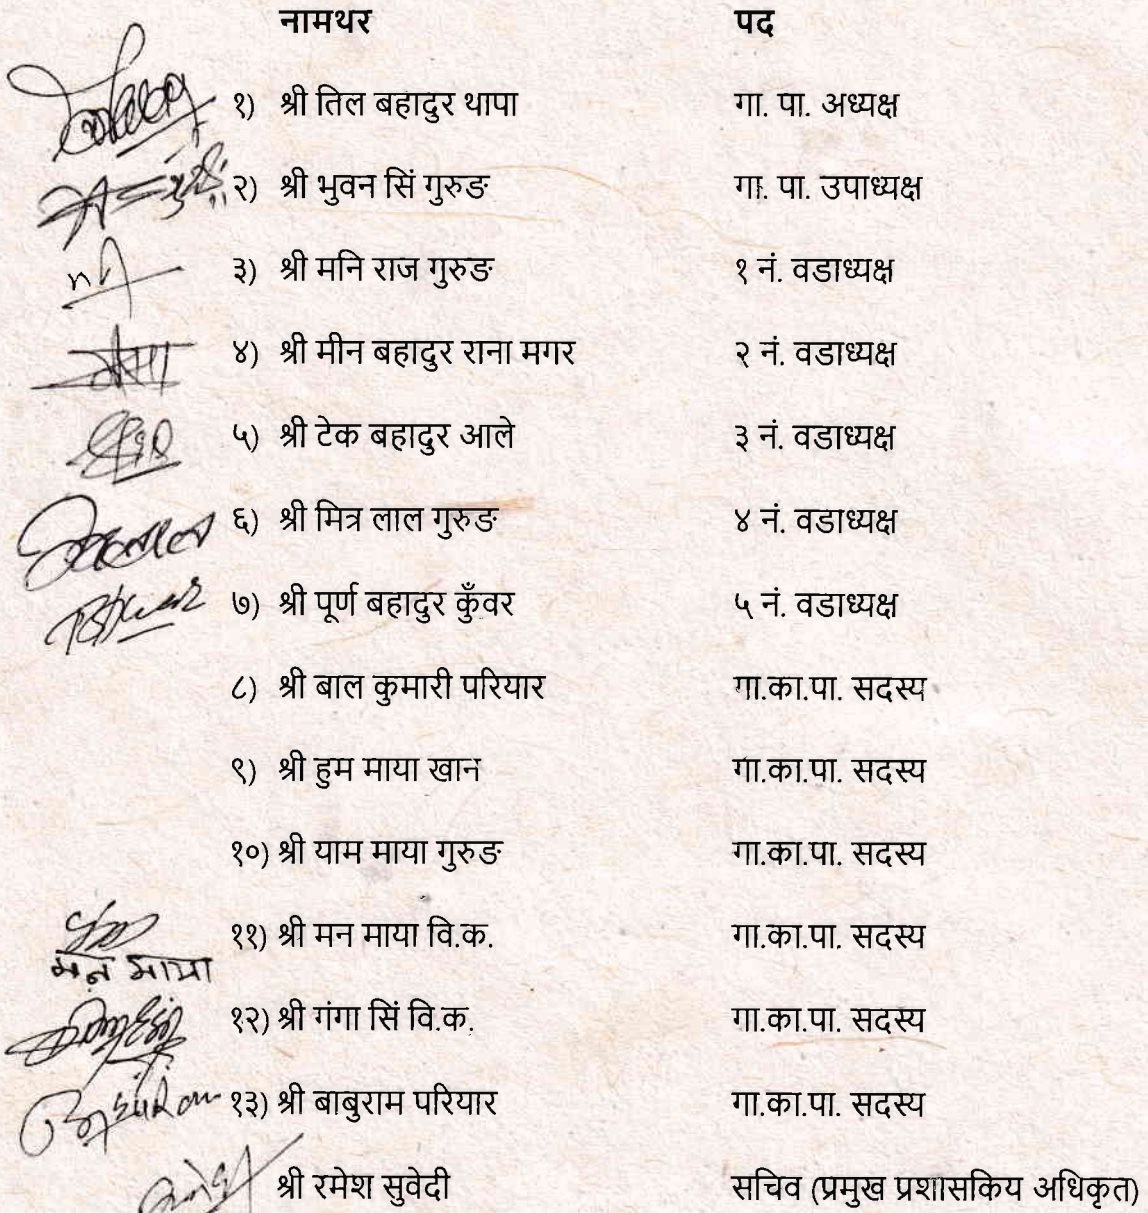 नामथर पद
१) श्री तिल बहादुर थापा गा. पा. अध्यक्ष
२) श्री भुवन सिं गुरुङ गा. पा. उपाध्यक्ष
३) श्री मनि राज गुरुङ १ नं. वडाध्यक्ष
४) श्री मीन बहादुर राना मगर २ नं. वडाध्यक्ष
५) श्री टेक बहादुर आले ३ नं. वडाध्यक्ष
६) श्री मित्र लाल गुरुङ ४ नं. वडाध्यक्ष
७) श्री पूर्ण बहादुर कुँवर ५ नं. वडाध्यक्ष
८) श्री बाल कुमारी परियार गा.का.पा. सदस्य
९) श्री हुम माया खान गा.का.पा. सदस्य
१०) श्री याम माया गुरुङ गा.का.पा. सदस्य
११) श्री मन माया वि.क. गा.का.पा. सदस्य
मन माया
१२) श्री गंगा सिं वि.क. गा.का.पा. सदस्य
१३) श्री बाबुराम परियार गा.का.पा. सदस्य
श्री रमेश सुवेदी सचिव (प्रमुख प्रशासकिय अधिकृत)